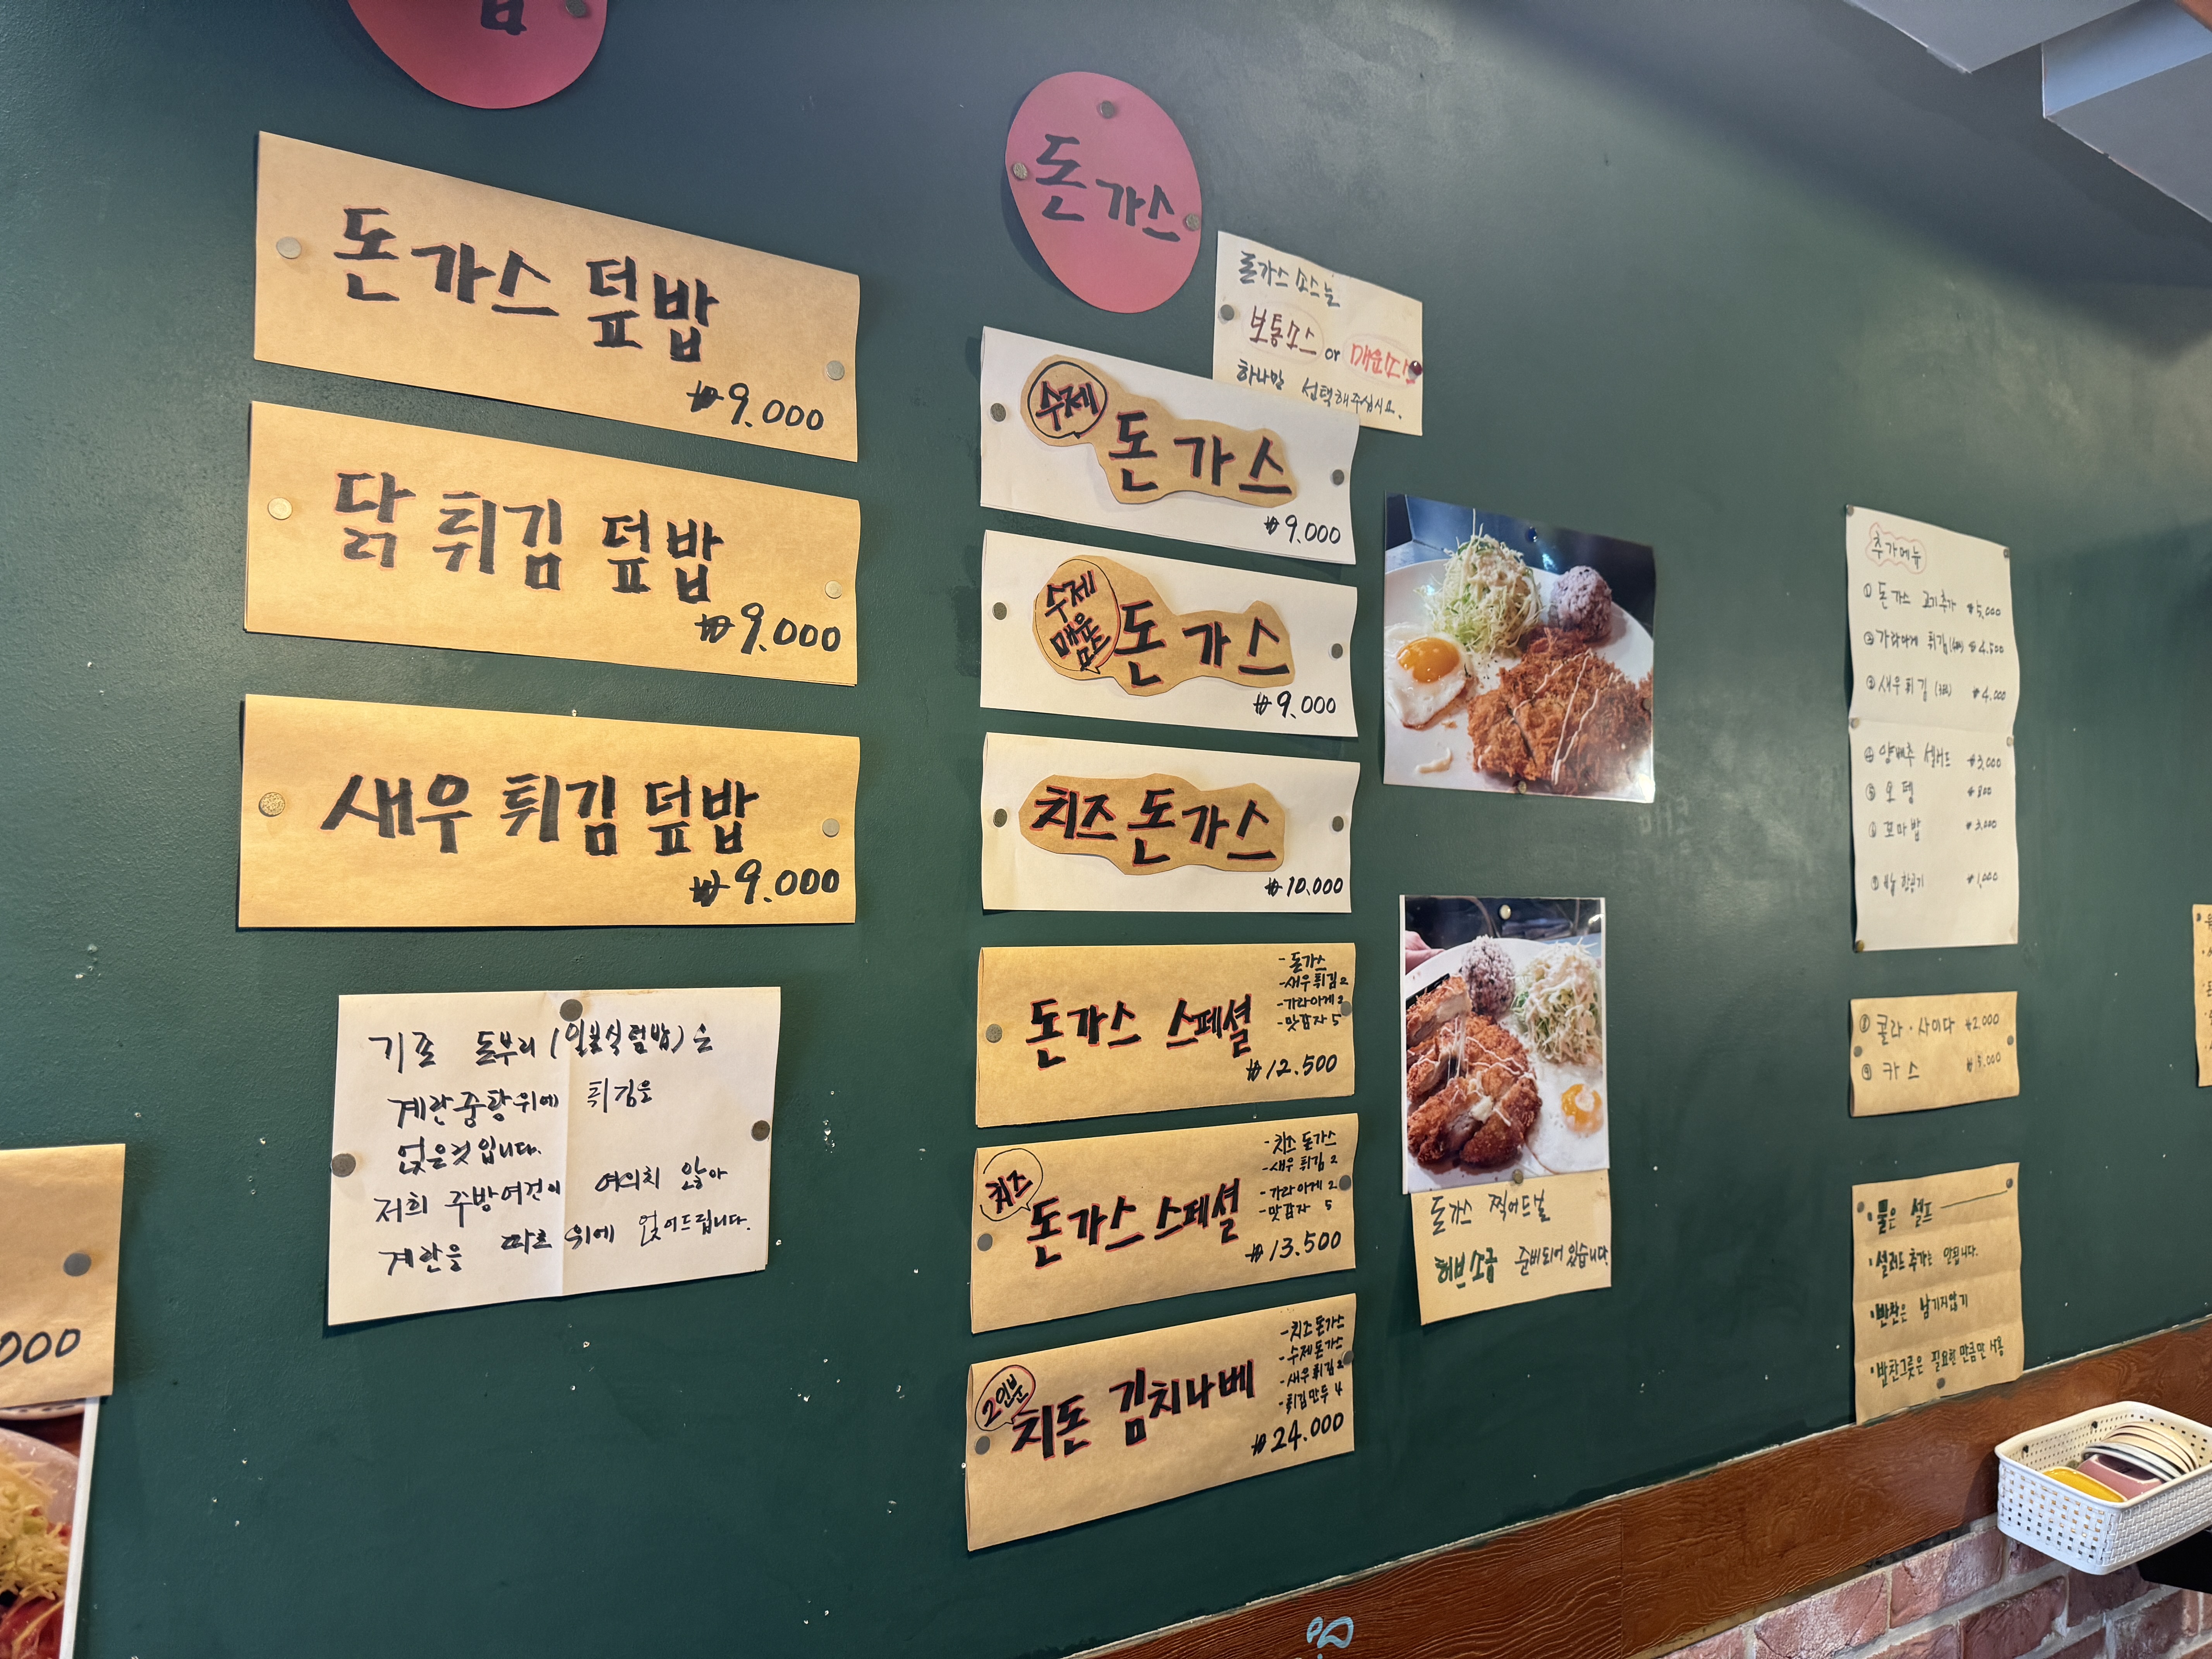 밥
돈가스 덮밥
₩9.000
닭 튀김 덮밥
₩9.000
새우 튀김 덮밥
₩9.000
기존 돈부리 (일본식덮밥)은
계란중탕위에 튀김을
얹은것입니다.
저희 주방여건이 여의치 않아
계란을 따로 위에 얹어드립니다.
000
돈가스
돈가스 소스는
보통소스 or 매운소스
하나만 선택해주십시요.
수제
돈가스
₩9.000
수제
매운
소스
돈가스
₩9.000
치즈돈가스
₩10,000
돈가스 스페셜
- 돈가스
- 새우튀김2
- 가라아게2
- 맛감자 5
₩12.500
치즈
돈가스 스페셜
- 치즈돈가스
- 새우튀김 2
- 가라아게 2
- 맛감자 5
₩13.500
2인분
치돈 김치나베
- 치즈돈가스
- 수제돈가스
- 새우튀김2
- 튀김만두 4
₩24.000
돈가스 찍어드실
허브소금 준비되어있습니다
추가메뉴
① 돈가스 고기추가 ₩5,000
② 가라아게 튀김 ₩4.500
③ 새우튀김 ₩4,000
④ 양배추 샐러드 ₩3,000
⑤ 오뎅 ₩800
⑥ 꼬마밥 ₩3,000
⑦ 밥 한공기 ₩1,000
⑧ 콜라·사이다 ₩2.000
⑨ 카스 ₩5.000
• 물은 셀프
• 샐러드 추가는 안됩니다.
• 반찬은 남기지않기
• 반찬그릇은 필요한 만큼만 사용